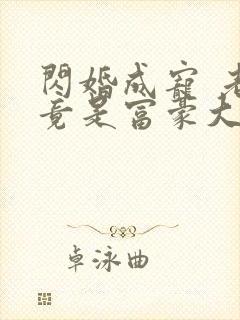 閃婚成寵 老
竟是富豪大
卓泳曲